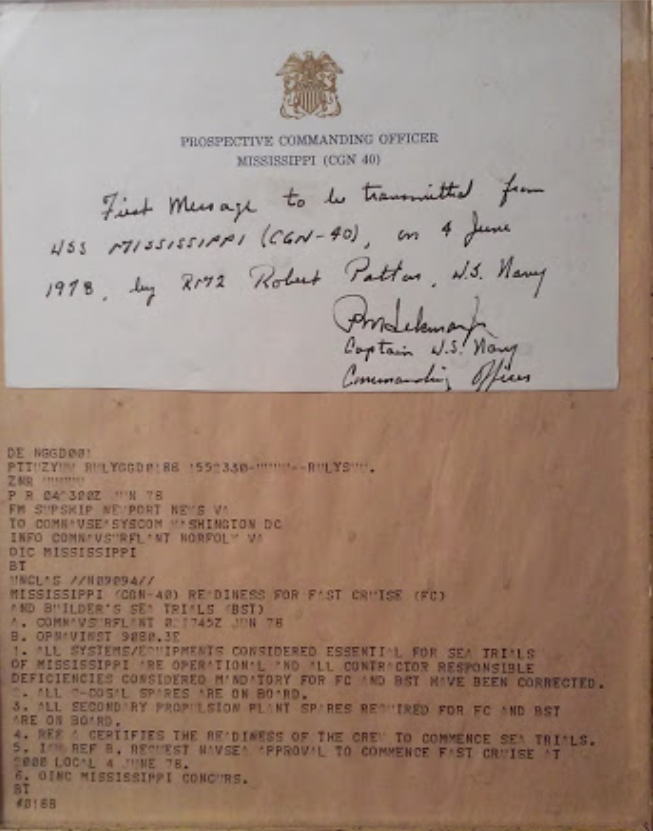 PROSPECTIVE COMMANDING OFFICER
MISSISSIPPI (CGN 40)
First Message to be transmitted from
USS MISSISSIPPI (CGN-40), on 4 June
1978, by RM2 Robert Patton, U.S. Navy
Captain U.S. Navy
Commanding Officer
DE NGGD001
ZNR
P R 04 300Z N 78
FM S PSHIP NE PORT NE S VA
TO COMN VSE SYSCOM W SHINGTON DC
INFO COMN VS RFL NT NORFOL VA
OIC MISSISSIPPI
BT
UNCL S //N09094//
MISSISSIPPI (CGN-40) RE DINESS FOR F ST CR ISE (FC)
ND B ILDER'S SE TRI LS (BST)
. COMN VS RFL NT 745Z N 78
B. OPN VINST 9080.3E
1. LL SYSTEMS/E IPMENTS CONSIDERED ESSENTI L FOR SE TRI LS
OF MISSISSIPPI RE OPERATION L ND LL CONTR CTOR RESPONSIBLE
DEFICIENCIES CONSIDERED M ND TORY FOR FC ND BST H VE BEEN CORRECTED.
. LL COS L SP RES RE ON BO RD.
3. LL SECOND RY PROP LSION PL NT SP RES RE IRED FOR FC ND BST
RE ON BO RD.
4. REF CERTIFIES THE RE DINESS OF THE CRE TO COMMENCE SE TRI LS.
5. I REF B. RE EST N VSE PPROV L TO COMMENCE F ST CR ISE T
000 LOC L 4 NE 78.
6. OINC MISSISSIPPI CONC RS.
BT
#0188